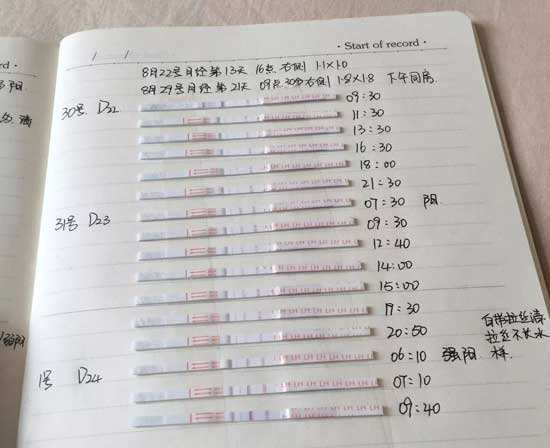 Start of record
8月22号月经第13天 16点 右侧 1.1×1.0
8月29号月经第21天 09点30 右侧 1.8×1.8 下午同房
30号 D22
09:30
11:30
13:30
16:30
18:00
21:30
31号 D23
07:30 阴
09:30
12:40
14:00
15:00
19:30
20:50
白带拉丝清
拉丝不长水
样.
1号 D24
06:10 强阳
07:10
09:40